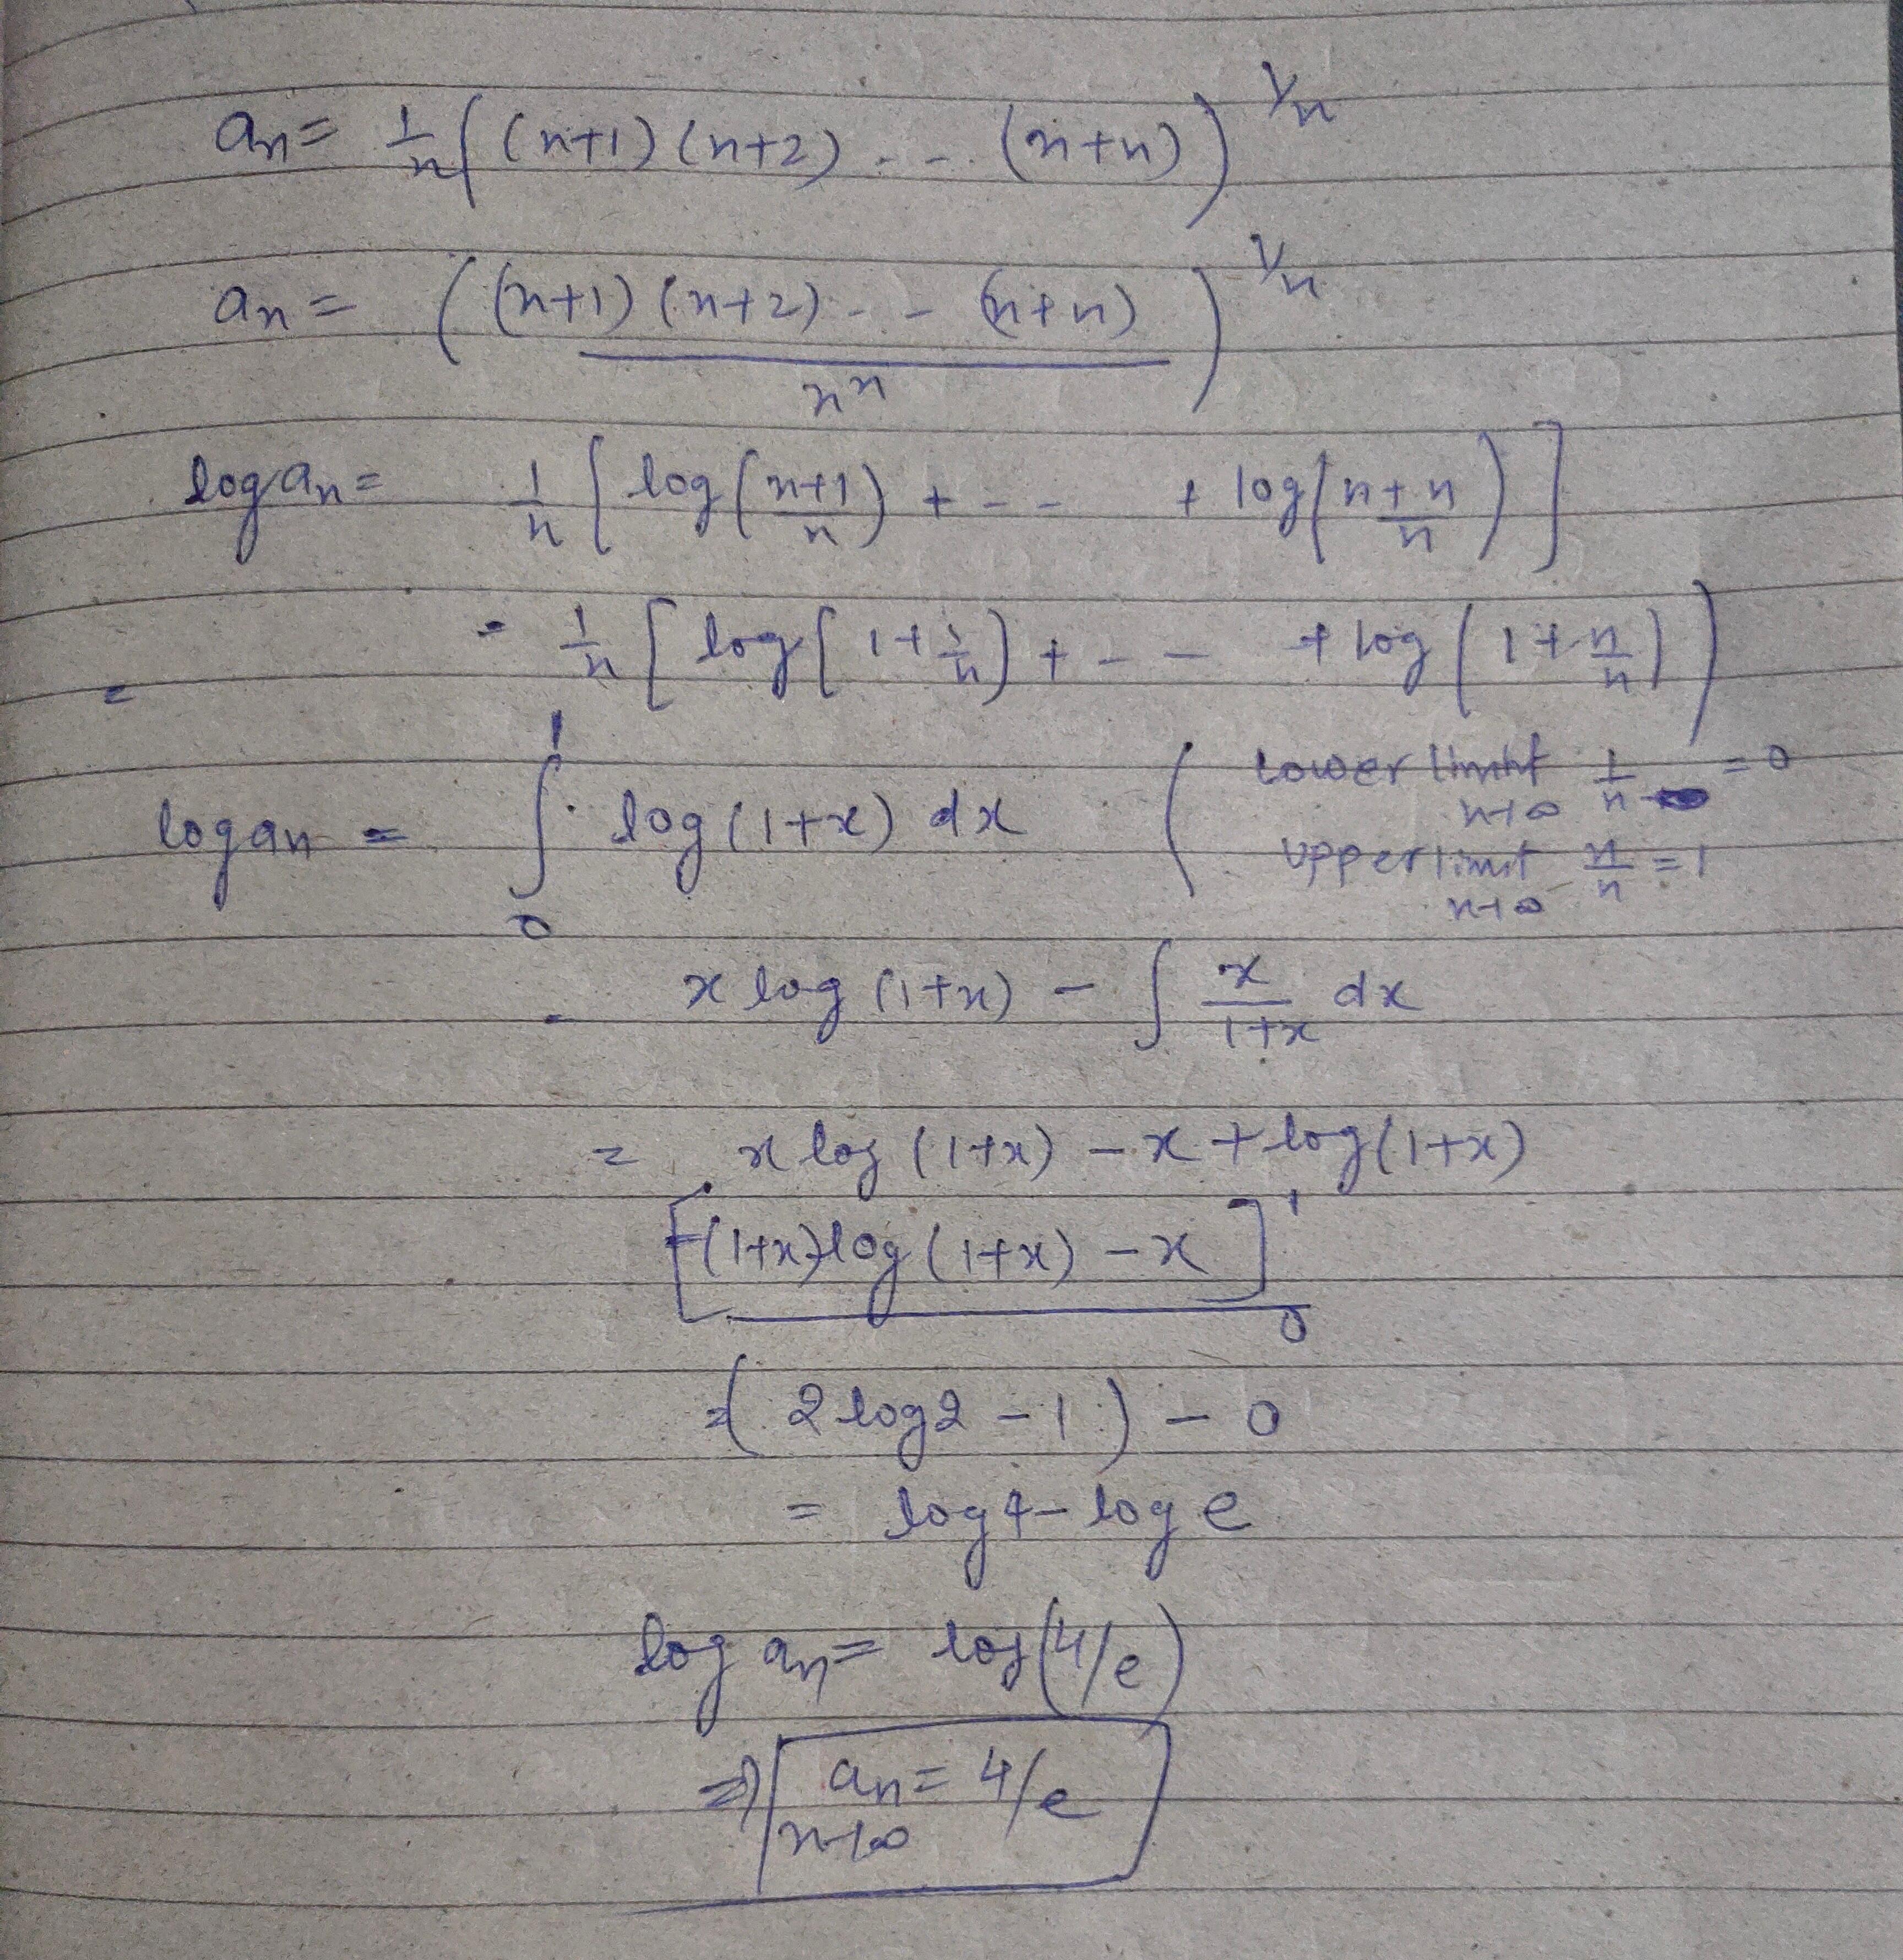 an = 1/n ( (n+1) (n+2) - - - (n+n) )^1/n
an = ( (n+1) (n+2) - - - (n+n) / n^n )^1/n
log an = 1/n [ log (n+1/n) + - - - + log (n+n/n) ]
= 1/n [ log ( 1+1/n) + - - + log ( 1+n/n ) )
=
log an = ∫_0^1 log (1+x) dx ( lower limit n→∞ 1/n = 0
upper limit n→∞ n/n = 1
= x log (1+x) - ∫ x/1+x dx
= x log (1+x) - x + log (1+x)
[ (1+x) log (1+x) - x ]_0^1
= ( 2 log 2 - 1 ) - 0
= log 4 - log e
log an = log (4/e)
⇒ an = 4/e
n→∞